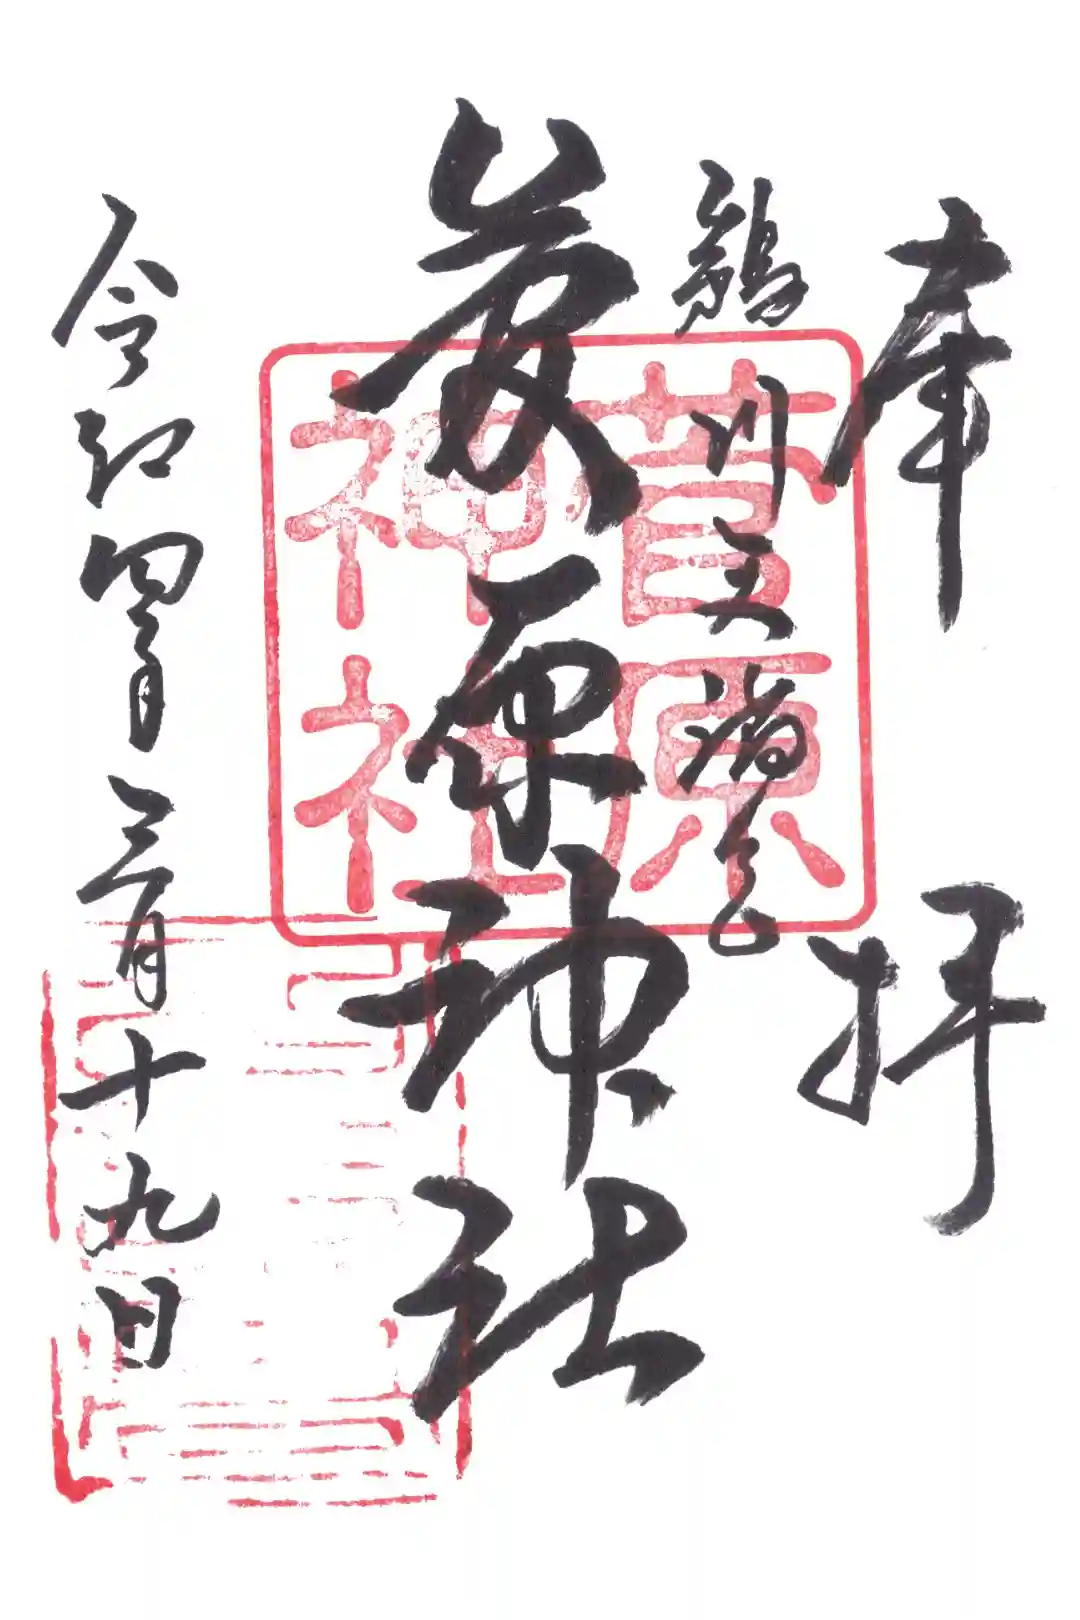 奉拝
天満宮
菅原神社
令和四年三月十九日
菅原
神社